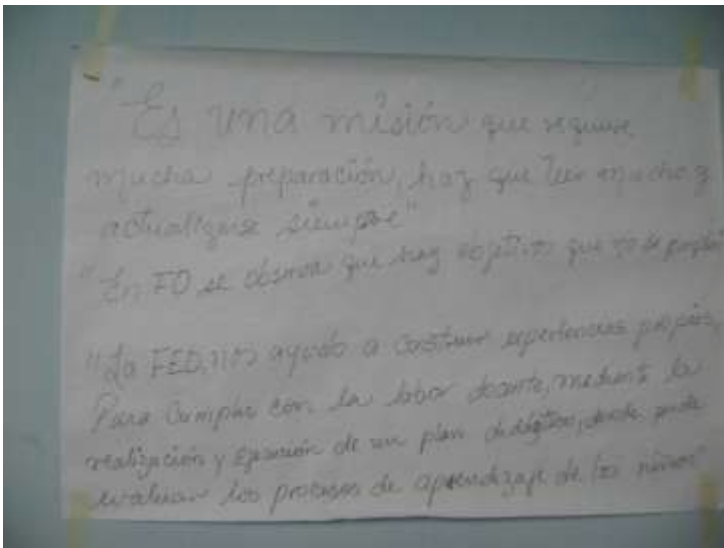 "Es una misión que requiere
mucha preparación, hay que leer mucho y
actualizarse siempre"
"En FD se observa que hay objetivos que no se
"La FED, nos ayudó a construir experiencias propias,
Para cumplir con la labor docente, mediante la
realización y ejecución de un plan didáctico, donde pude
evaluar los procesos de aprendizaje de los niños"